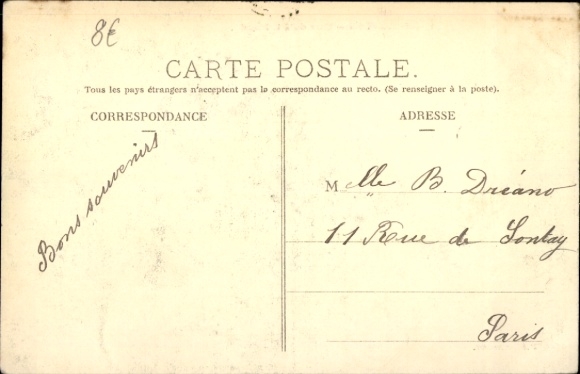 8€
CARTE POSTALE.
Tous les pays étrangers n'acceptent pas la correspondance au recto. (Se renseigner à la poste).
CORRESPONDANCE
ADRESSE
Bons souvenirs
Melle B. Dréano
11 Rue de Lontay
Paris